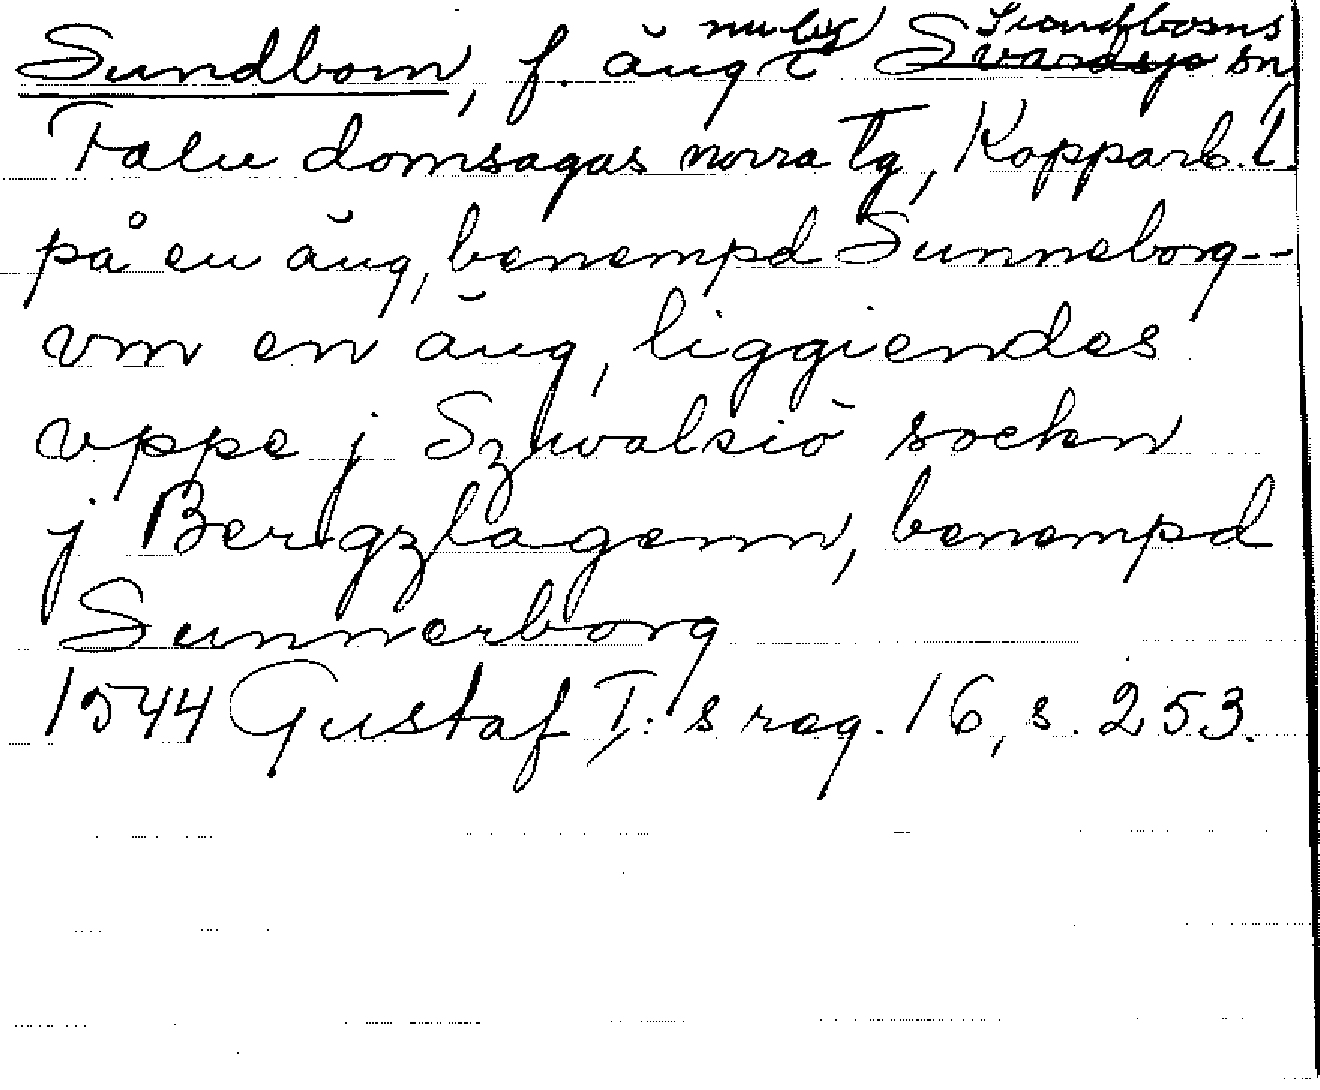 Sundborn, f. äng i nuv. Sundborns Svärdsjö sn
Falu domsagas norra tg, Kopparb. l.
på en äng, benempd Sunneborg--
vm en äng, liggiendes
vppe j Szwalsiö sockn
j Bergzlagenn, benempd
Sunnerborg
1544 Gustaf I:s reg. 16, s. 253.